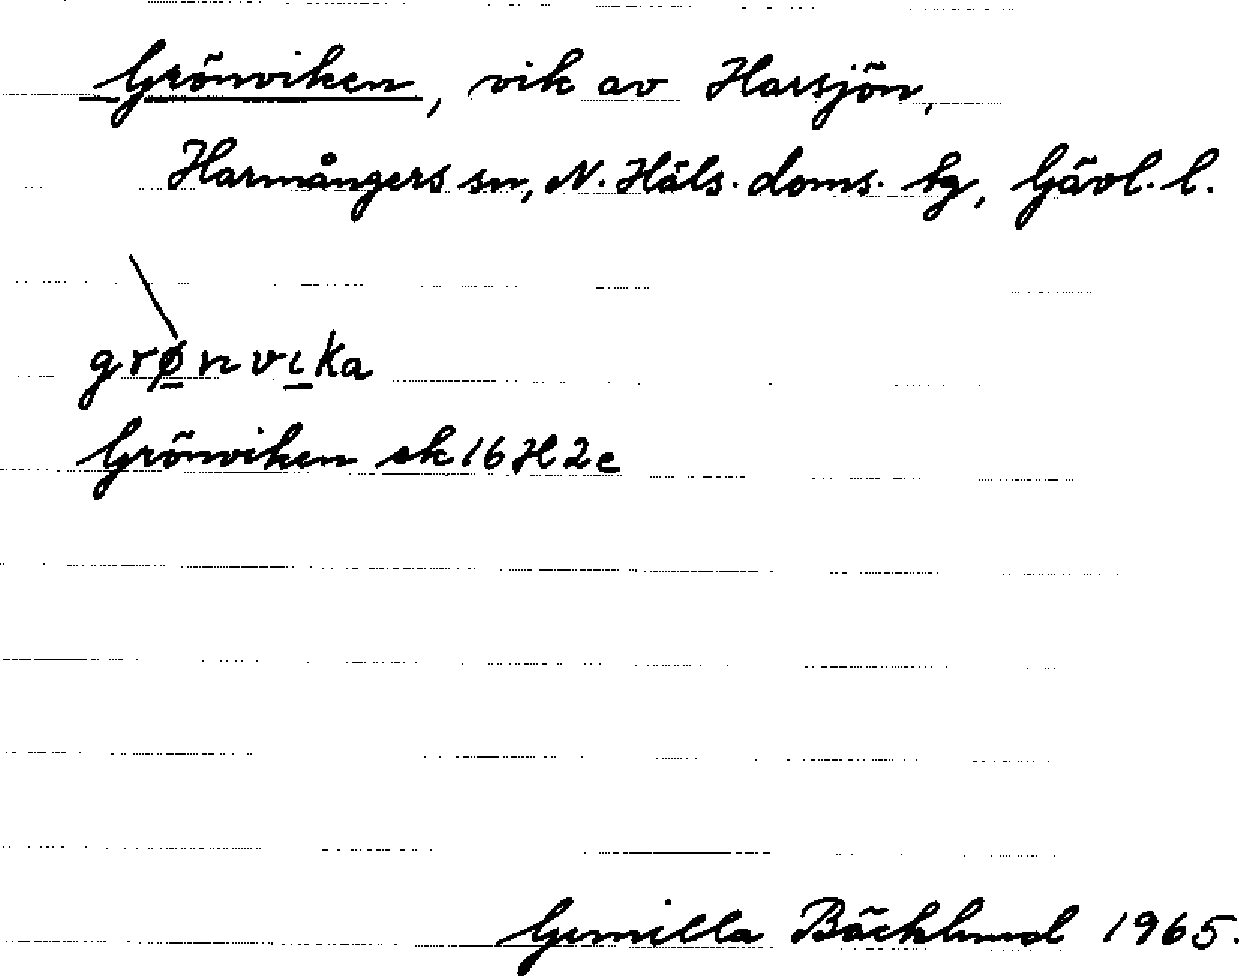 Grönviken, vik av Harsjön,
Harmångers sn, N. Häls. doms. tg, Gävl. l.
grø̱nvı̱ka
Grönviken ek 16H2e
Gunilla Bäcklund 1965.